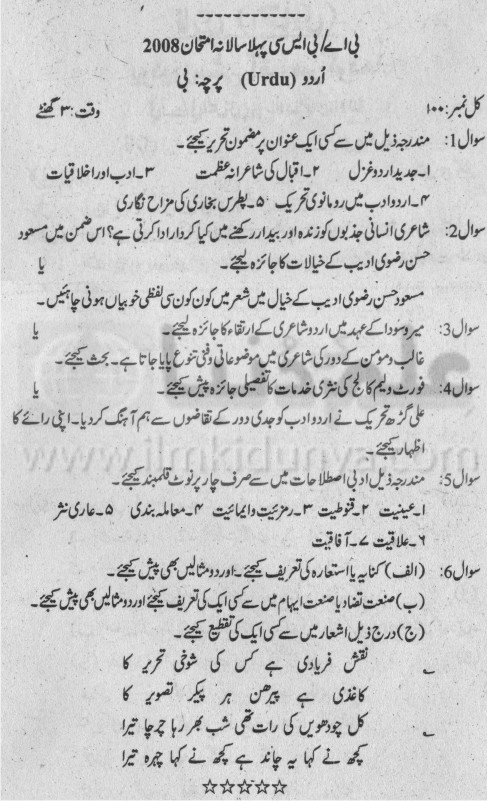 بی اے/بی ایس سی پہلا سالانہ امتحان 2008
اُردو (Urdu) پرچہ: بی
کل نمبر: ۱۰۰ وقت: ۳ گھنٹے
سوال1: مندرجہ ذیل میں سے کسی ایک عنوان پر مضمون تحریر کیجئے۔
۱۔ جدید اردو غزل ۲۔ اقبال کی شاعرانہ عظمت ۳۔ ادب اور اخلاقیات
۴۔ اردو ادب میں رومانوی تحریک ۵۔ پطرس بخاری کی مزاح نگاری
سوال2: شاعری انسانی جذبوں کو زندہ اور بیدار رکھنے میں کیا کردار ادا کرتی ہے؟ اس ضمن میں مسعود
حسن رضوی ادیب کے خیالات کا جائزہ لیجئے۔ یا
مسعود حسن رضوی ادیب کے خیال میں شعر میں کون کون سی لفظی خوبیاں ہونی چاہئیں۔
سوال3: میر و سودا کے عہد میں اردو شاعری کے ارتقاء کا جائزہ لیجئے۔ یا
غالب و مومن کے دور کی شاعری میں موضوعاتی و فنی تنوع پایا جاتا ہے۔ بحث کیجئے۔
سوال4: فورٹ ولیم کالج کی نثری خدمات کا تفصیلی جائزہ پیش کیجئے۔ یا
علی گڑھ تحریک نے اردو ادب کو جدی دور کے تقاضوں سے ہم آہنگ کر دیا۔ اپنی رائے کا
اظہار کیجئے۔
www.ilmkidunya.com
سوال5: مندرجہ ذیل ادبی اصطلاحات میں سے صرف چار پر نوٹ قلمبند کیجئے۔
۱۔ عینیت ۲۔ قنوطیت ۳۔ رمزیت و ایمائیت ۴۔ معاملہ بندی ۵۔ عاری نثر
۶۔ علاقیت ۷۔ آفاقیت
سوال6: (الف) کنایہ یا استعارہ کی تعریف کیجئے۔ اور دو مثالیں بھی پیش کیجئے۔
(ب) صنعت تضاد یا صنعت ایہام میں سے کسی ایک کی تعریف کیجئے اور دو مثالیں بھی پیش کیجئے۔
(ج) درج ذیل اشعار میں سے کسی ایک کی تقطیع کیجئے۔
نقش فریادی ہے کس کی شوخی تحریر کا
کاغذی ہے پیرھن ہر پیکر تصویر کا
کل چودھویں کی رات تھی شب بھر رہا چرچا تیرا
کچھ نے کہا یہ چاند ہے کچھ نے کہا چہرہ تیرا